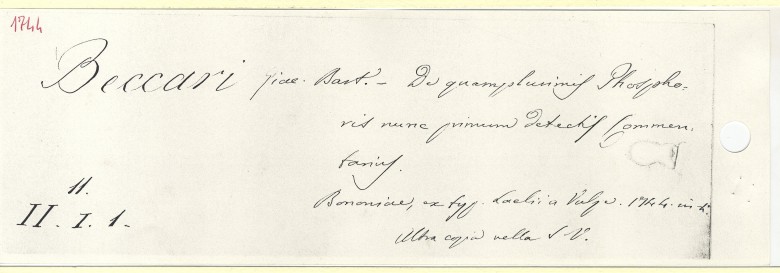 1744
Beccari Jac. Bart. – De quamplurimis Phospho-
ris nunc primum detectis Commen-
tarius.
Bononiae, ex typ. Laelii a Vulpe. 1744. in 4.
Altra copia nella S. V.
11.
II. I. 1.